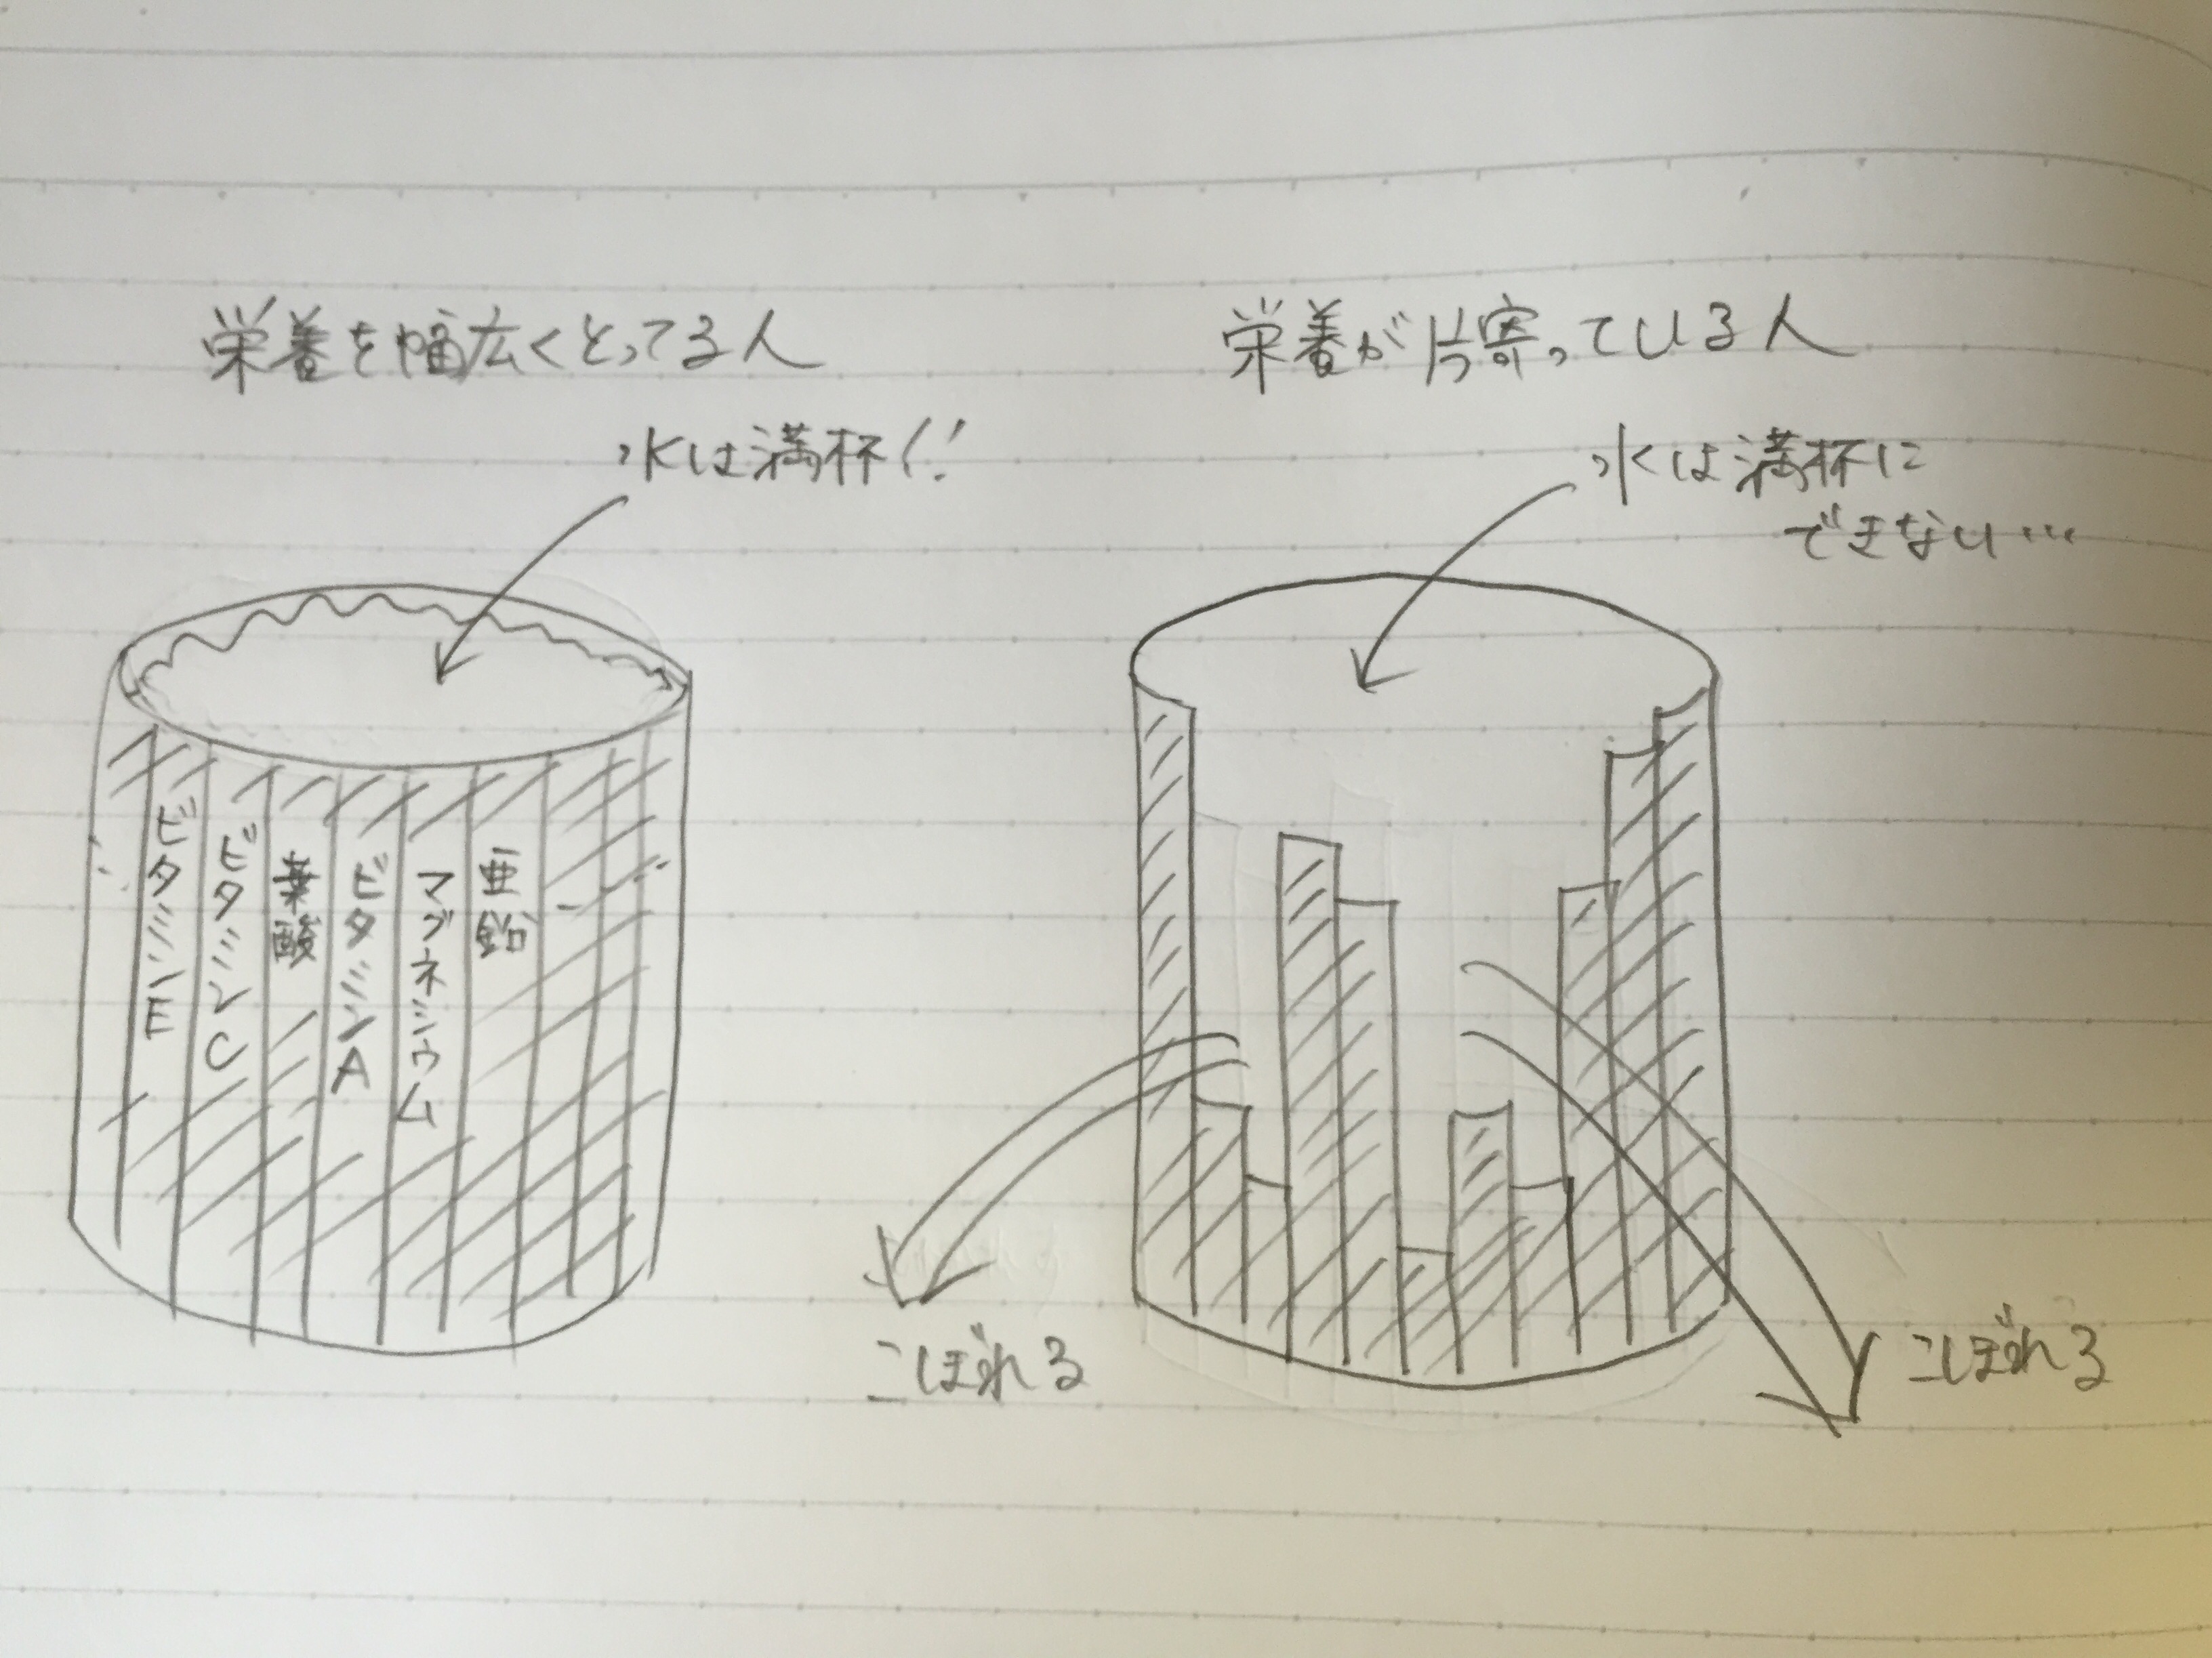 栄養を幅広くとってる人
水は満杯!!
ビタミンE
ビタミンC
葉酸
ビタミンA
マグネシウム
亜鉛
栄養が片寄っている人
水は満杯に
できない…
こぼれる
こぼれる